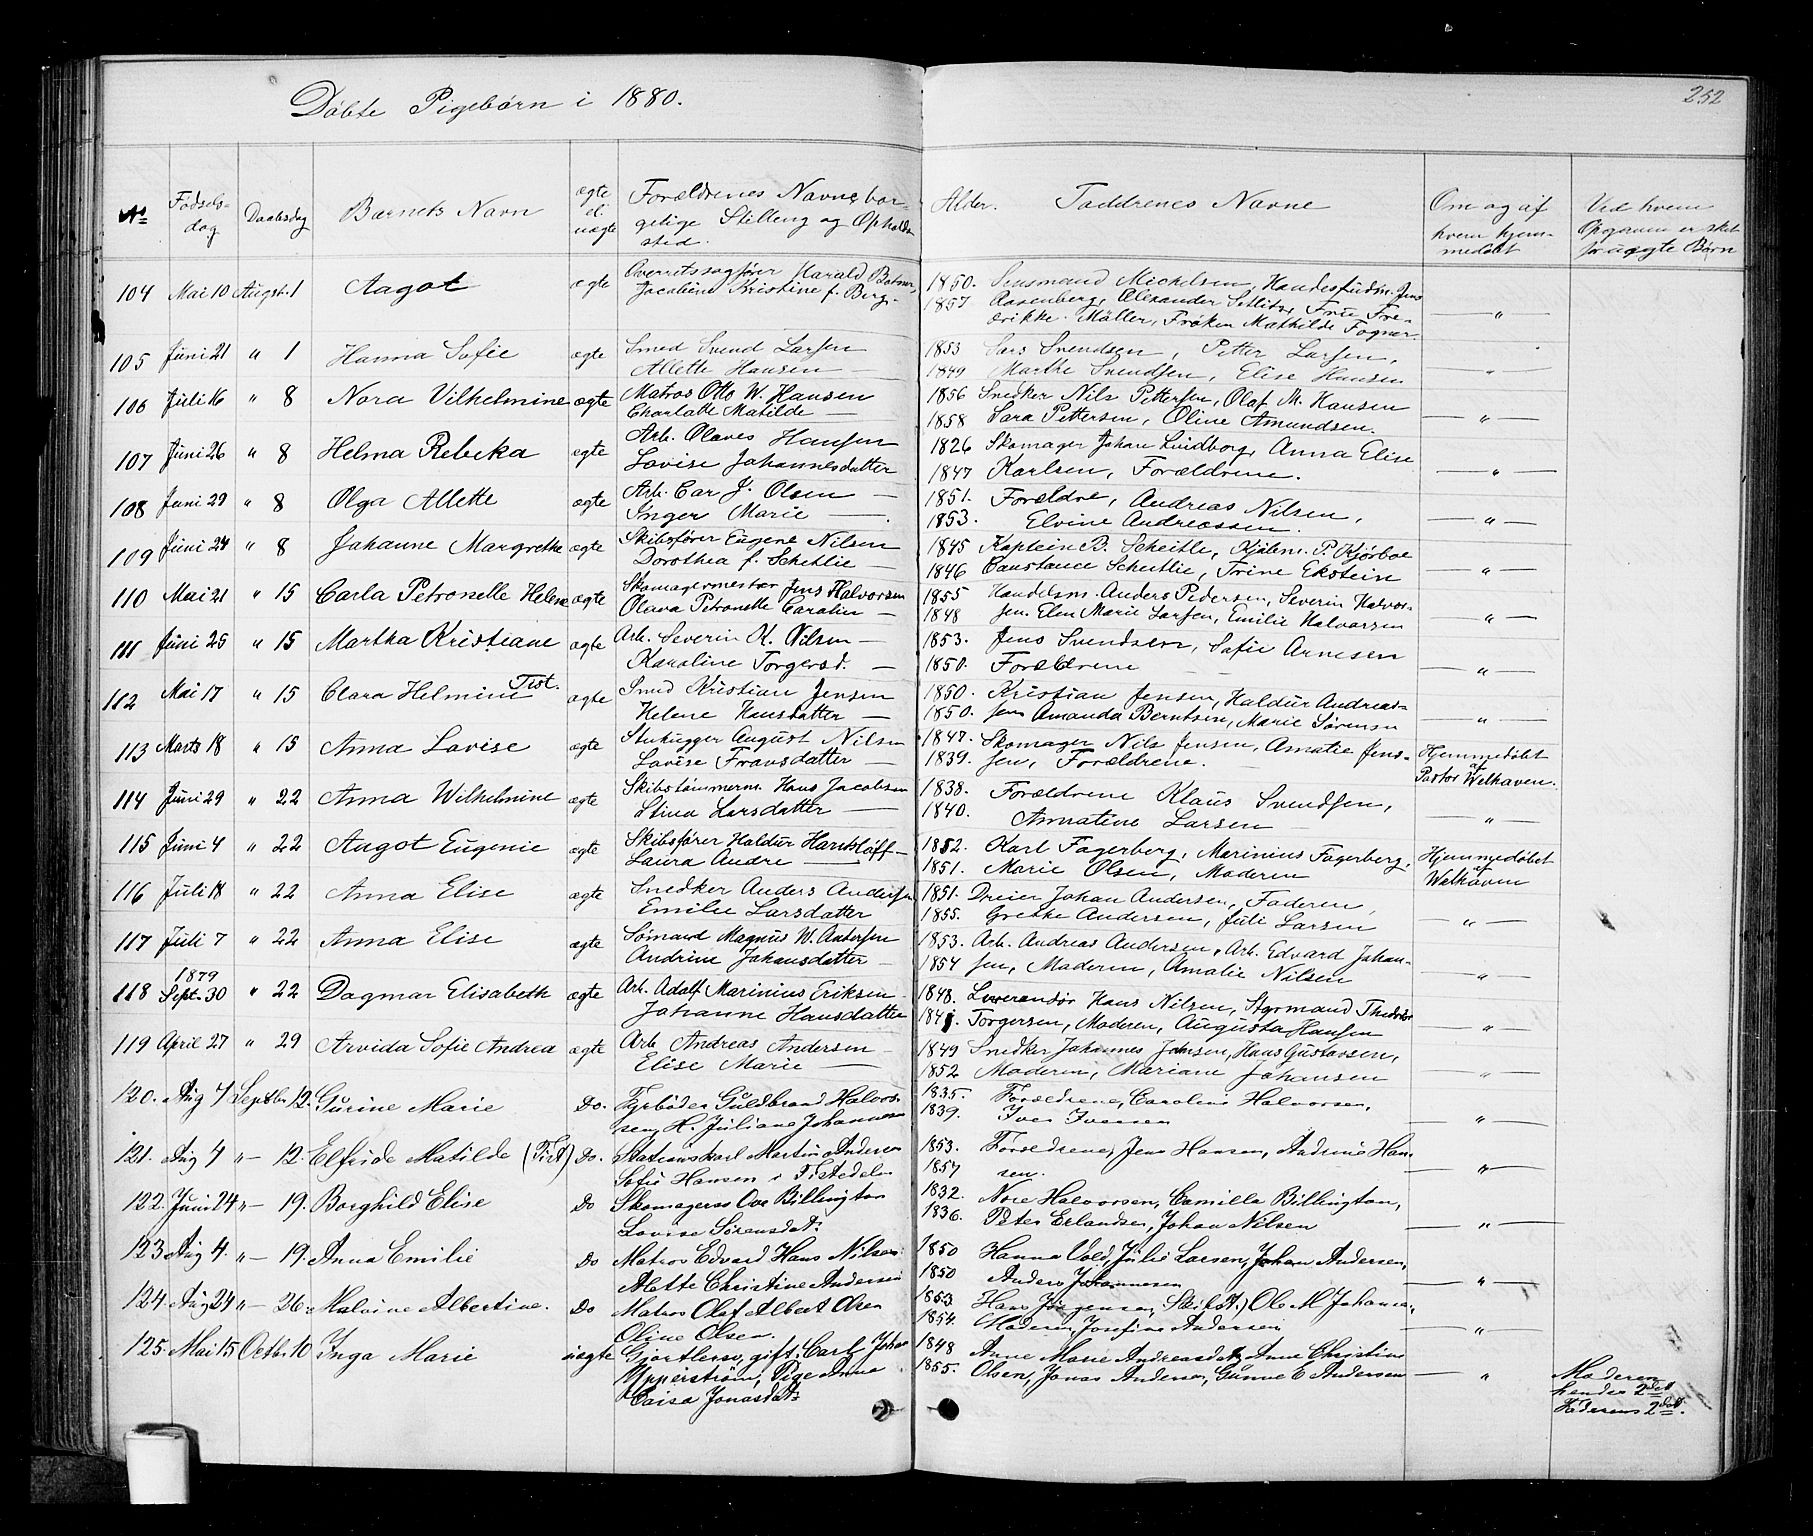 Döbte Pigebörn i 1880.
252
No
Födsels-
dag
Daabsdag
Barnets Navn
ægte
el.
uægte
Forældrenes Navne, bor-
gelige Stilling og Opholds-
sted.
Alder.
Faddrenes Navne
Om og af
hvem hjem-
medöbt
Ved hvem
Opgaven er sket
for uægte Börn
104 Mai 10 Augst. 1 Aagot ægte Overretssagförer Harald
Jacobine Kristine f. Berg.
1850.
1857
Michelsen,
Alexander
Möller, Fröken Mathilde
— " —
105 Juni 21 " 1 Hanna Sofie ægte Smed Svend Larsen 1853 Lars Svendsen, Petter Larsen,
Allette Hansen — 1849 Marthe Svendsen, Elise Hansen — " —
106 Juli 16 " 8 Nora Vilhelmine ægte Matros Otto W. Hansen 1856 Snedker Nils Pettersen, Olaf M. Hansen
Charlotte Matilde — 1858 Sara Pettersen, Oline Amundsen. — " —
107 Juni 26 " 8 Helma Rebeka ægte Arb. Olaves Hansen 1826 Skomager Johan Lindborg, Anna Elise
Lovise Johannesdatter 1847 Karlsen, Forældrene. — " —
108 Juni 29 " 8 Olga Allette ægte Arb. Car J. Olsen — 1851. Forældre, Andreas Nilsen,
Inger Marie — 1853. Elvine Andreassen. — " —
109 Juni 24 " 8 Johanne Margrethe ægte Skibsförer Eugene Nilsen 1845 Kaptein B. Scheitle, P. Kjörboe
Dorothea f. Schetlie — 1846 Constance Scheitlie, Trine Ekstein — " —
110 Mai 21 " 15 Carla Petronelle Helene ægte Skomagermester Jens Halvorsen 1855 Handelsm. Anders Pedersen, Severin Halvor-
Olava Petronelle Carolin — 1848 sen. Elen Marie Larsen, Emilie Halvorsen — " —
111 Juni 25 " 15 Martha Kristiane ægte Arb. Severin K. Nilsen — 1853. Jens Svendsen, Sofie Arnesen
Karoline Torgersd. — 1850. Forældrene — " —
112 Mai 17 " 15 Clara Helmine Tist. ægte Smed Kristian Jensen 1850. Kristian Jensen, Haldur Andreas-
Helene Hansdatter — 1850. sen Amanda Berntsen, Marie Sörensn — " —
113 Marts 18 " 15 Anna Lovise ægte Stenhugger August Nilsen 1847. Skomager Nils Jensen, Amatie Jens- Hjemmedöbt
Lovise Fransdatter — 1839. sen, Forældrene. af Pastor Welhaven.
114 Juni 29 " 22 Anna Wilhelmine ægte Skibstömmerm. Hans Jacobsen 1838. Forældrene Klaus Svendsen,
Stina Larsdatter — 1840. Annatine Larsen — " —
115 Juni 4 " 22 Augot Eugenie ægte Skibsförer Haldur Hanklöff — 1852. Karl Fagerberg, Marinius Fagerberg, Hjemmedöbt
Laura Andre — 1851. Marie Olsen, Moderen af Welhaven
116 Juli 18 " 22 Anna Elise ægte Snedker Anders Andersen 1851. Dreier Johan Andersen, Faderen,
Emilie Larsdatter 1855. Grethe Andersen, Juli Larsen — " —
117 Juli 7 " 22 Anna Elise ægte Sömand Magnus W. Andersen 1853. Arb. Andreas Andersen, Arb. Edvard Johan-
Andrine Johansdatter — 1854 sen, Moderen, Amalie Nilsen — " —
118 1879 Sept. 30 " 22 Dagmar Elisabeth ægte Arb. Adolf Marinius Eriksen 1848. Leverandör Hans Nilsen, Styrmand Thedvlor
Johanne Hansdatter Torgersen, Moderen, Augusta Hansen — " —
119 April 27 " 29 Arvida Sofie Andrea ægte Arb Andreas Andersen — 1849 Snedker Johannes Jensen, Hans Gustavsen,
Elise Marie — 1852 Moderen, Mariane Johansen — " —
120. Aug 7 Septbr 12. Gurine Marie Do. Fyrböder Guldbrand Halvor- 1835. Forældrene, Caroline Halvorsen,
sen, H. Juliane Johannesen 1839. Iver Iversen — " —
121. Aug 4 " — 12. Elfride Matilde (Tist) Do. Stationskarl Martin Andersen 1853. Forældrene, Jens Hansen, Andrine Han-
Sofie Hansen i Tistedalen 1857 sen. — " —
122. Juni 24 " — 19. Borghild Elise Do Skomagersv Ove Billington 1832. Nore Halvorsen, Camilla Billington,
Lovise Sörensdat. 1836. Peter Erlandsen, Johan Nilsen — " —
123 Aug 4. " — 19. Anna Emilie Do Matros Edvard Hans Nilsen 1850 Hanna Vold, Julie Larsen, Johan Andersen,
Alette Christine Andersen 1850 Anders Johannesen — " —
124. Aug 24 " — 26. Malvine Albertine. Do Matros Olaf Albert Olsen 1853 Hans Jörgensen, Ole M Johans.,
Oline Olsen. 1854. Moderen, Josfine Andersen — " —
125. Mai 15 Octbr. 10 Inga Marie uægte Gjortlersv, gift, Carl Johan 1848 Anne Marie Andreasdat, Anne Christine
Ypperström, Pige Anne 1855. Olsen, Jonas Andersen, Gunne E Andersen — " — Moderen
Caisa Jonasdat. hendes 2det
Faderens 2det.